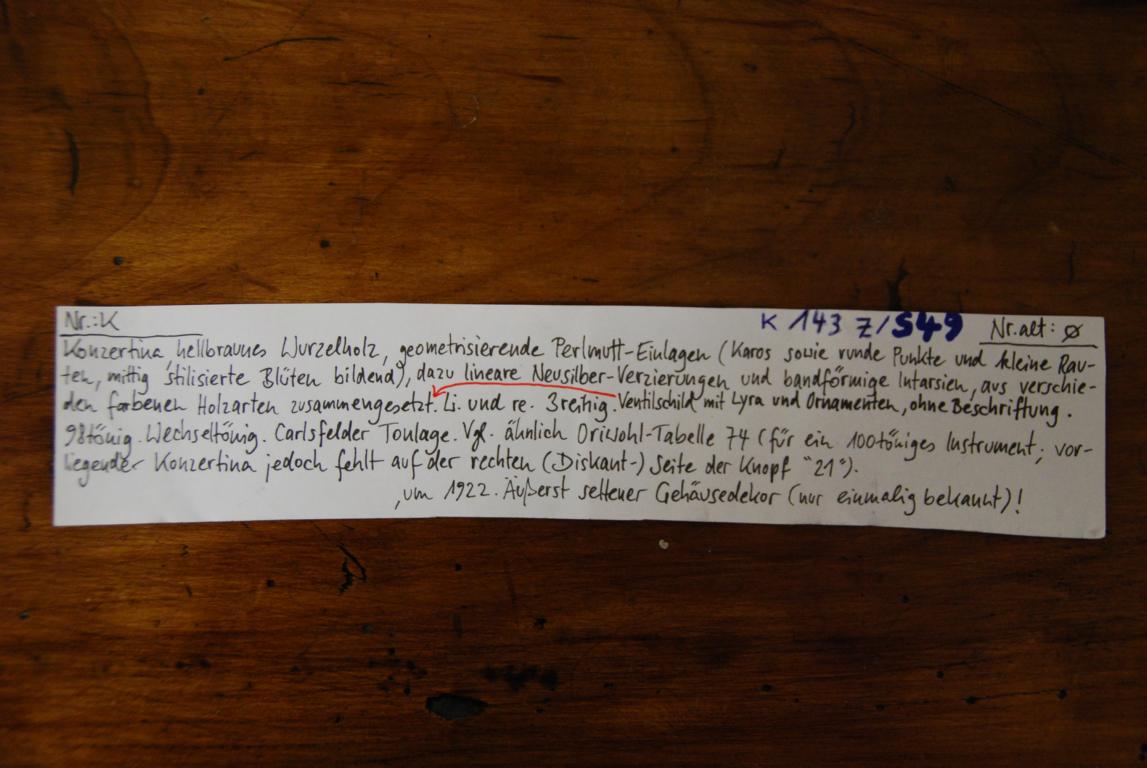 Nr.: K
K 143 Z/S49
Nr. alt: ø
Konzertina hellbraunes Wurzelholz, geometrisierende Perlmutt-Einlagen (Karos sowie runde Punkte und kleine Rau-
ten, mittig stilisierte Blüten bildend), dazu lineare Neusilber-Verzierungen und bandförmige Intarsien, aus verschie-
den farbenen Holzarten zusammengesetzt. Li. und re. 3reihig. Ventilschild mit Lyra und Ornamenten, ohne Beschriftung.
98tönig. Wechseltönig. Carlsfelder Tonlage. Vgl. ähnlich Oriwohl-Tabelle 74 (für ein 100töniges Instrument; vor-
liegender Konzertina jedoch fehlt auf der rechten (Diskant-) Seite der Knopf "21").
, um 1922. Äußerst seltener Gehäusedekor (nur einmalig bekannt)!